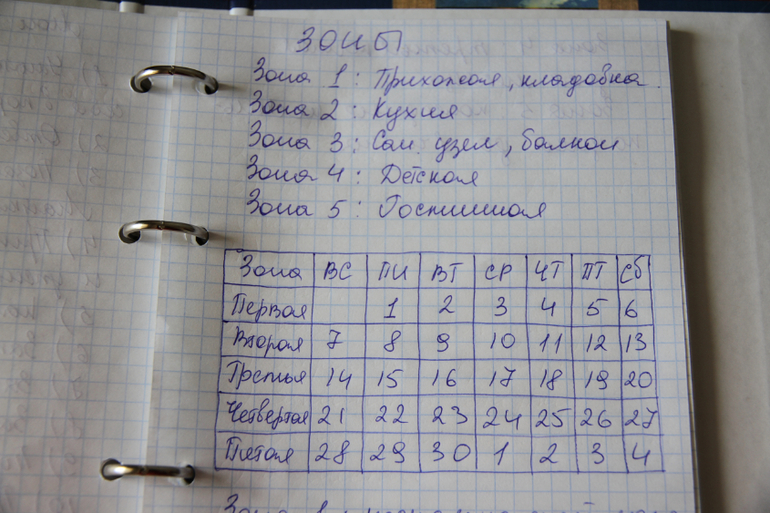 ЗОНЫ
Зона 1: Прихожая, кладовка.
Зона 2: Кухня
Зона 3: Сан узел, балкон
Зона 4: Детская
Зона 5: Гостинная
Зона ВС ПН ВТ СР ЧТ ПТ СБ
Первая 1 2 3 4 5 6
Вторая 7 8 9 10 11 12 13
Третья 14 15 16 17 18 19 20
Четвертая 21 22 23 24 25 26 27
Пятая 28 29 30 1 2 3 4
Зона 1